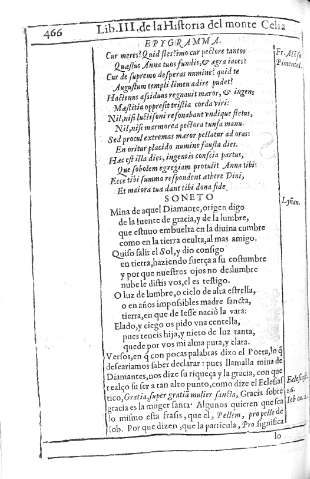 466 Lib. III. de la Historia del monte Celia
EPYGRAMMA.
Cur mæres? Quid fles? imo cur pectore tantos
Quæstus Anna tuos fundis, & agra iaces?
Cur de supremo desperas numine? quid te
Augustum templi limen adire pudet?
Hactenus assiduus regnauit mæror, & ingens
Mæstitia oppressit tristia corda viri:
Nil, nisi luctisoni resonabant vndique fletus,
Nil, nisi marmorea pectora tunsa manu.
Sed procul extremas mæror pellatur ad oras:
En oritur placido numine fausta dies.
Hæc est illa dies, ingentis conscia partus,
Que sobolem egregiam protulit Anna tibi:
Ecce tibi summo respondent athere Diui,
Et maiora tuis dant tibi dona fide.
Fr. Alōso
Pimentel.
SONETO
Mina de aquel Diamante, origen digo
de la fuente de gracia, y de la lumbre,
que estuuo embuelta en la diuina cumbre
como en la tierra oculta, al mas amigo.
Quiso salir el Sol, y dio consigo
en tierra, haziendo fuerça a su costumbre
y por que nuestros ojos no deslumbre
nube le distis vos, el es testigo.
O luz de lumbre, o cielo de alta estrella,
o en años impossibles madre sancta,
tierra, en que de Iesse naciò la vara:
Elado, y ciego os pido vna centella,
pues teneis hija, y nieto de luz tanta,
quede por vos mi alma pura, y clara.
Versos, en q̃ con pocas palabras dizo el Poeta, lo q̃
desseariamos saber declarar: pues llamalla mina de
Diamantes, nos dize su riqueza y la gracia, con que
realço su ser a tan alto punto, como dize el Eclesias
tico, Gratia super gratiā mulier sancta, Gracia sobre
gracia es la muger santa. Algunos quieren que sea
lo mismo esta frasis, que el, Pellem, pro pelle de
Iob. Por que dizen, que la particula, Pro significa
lo